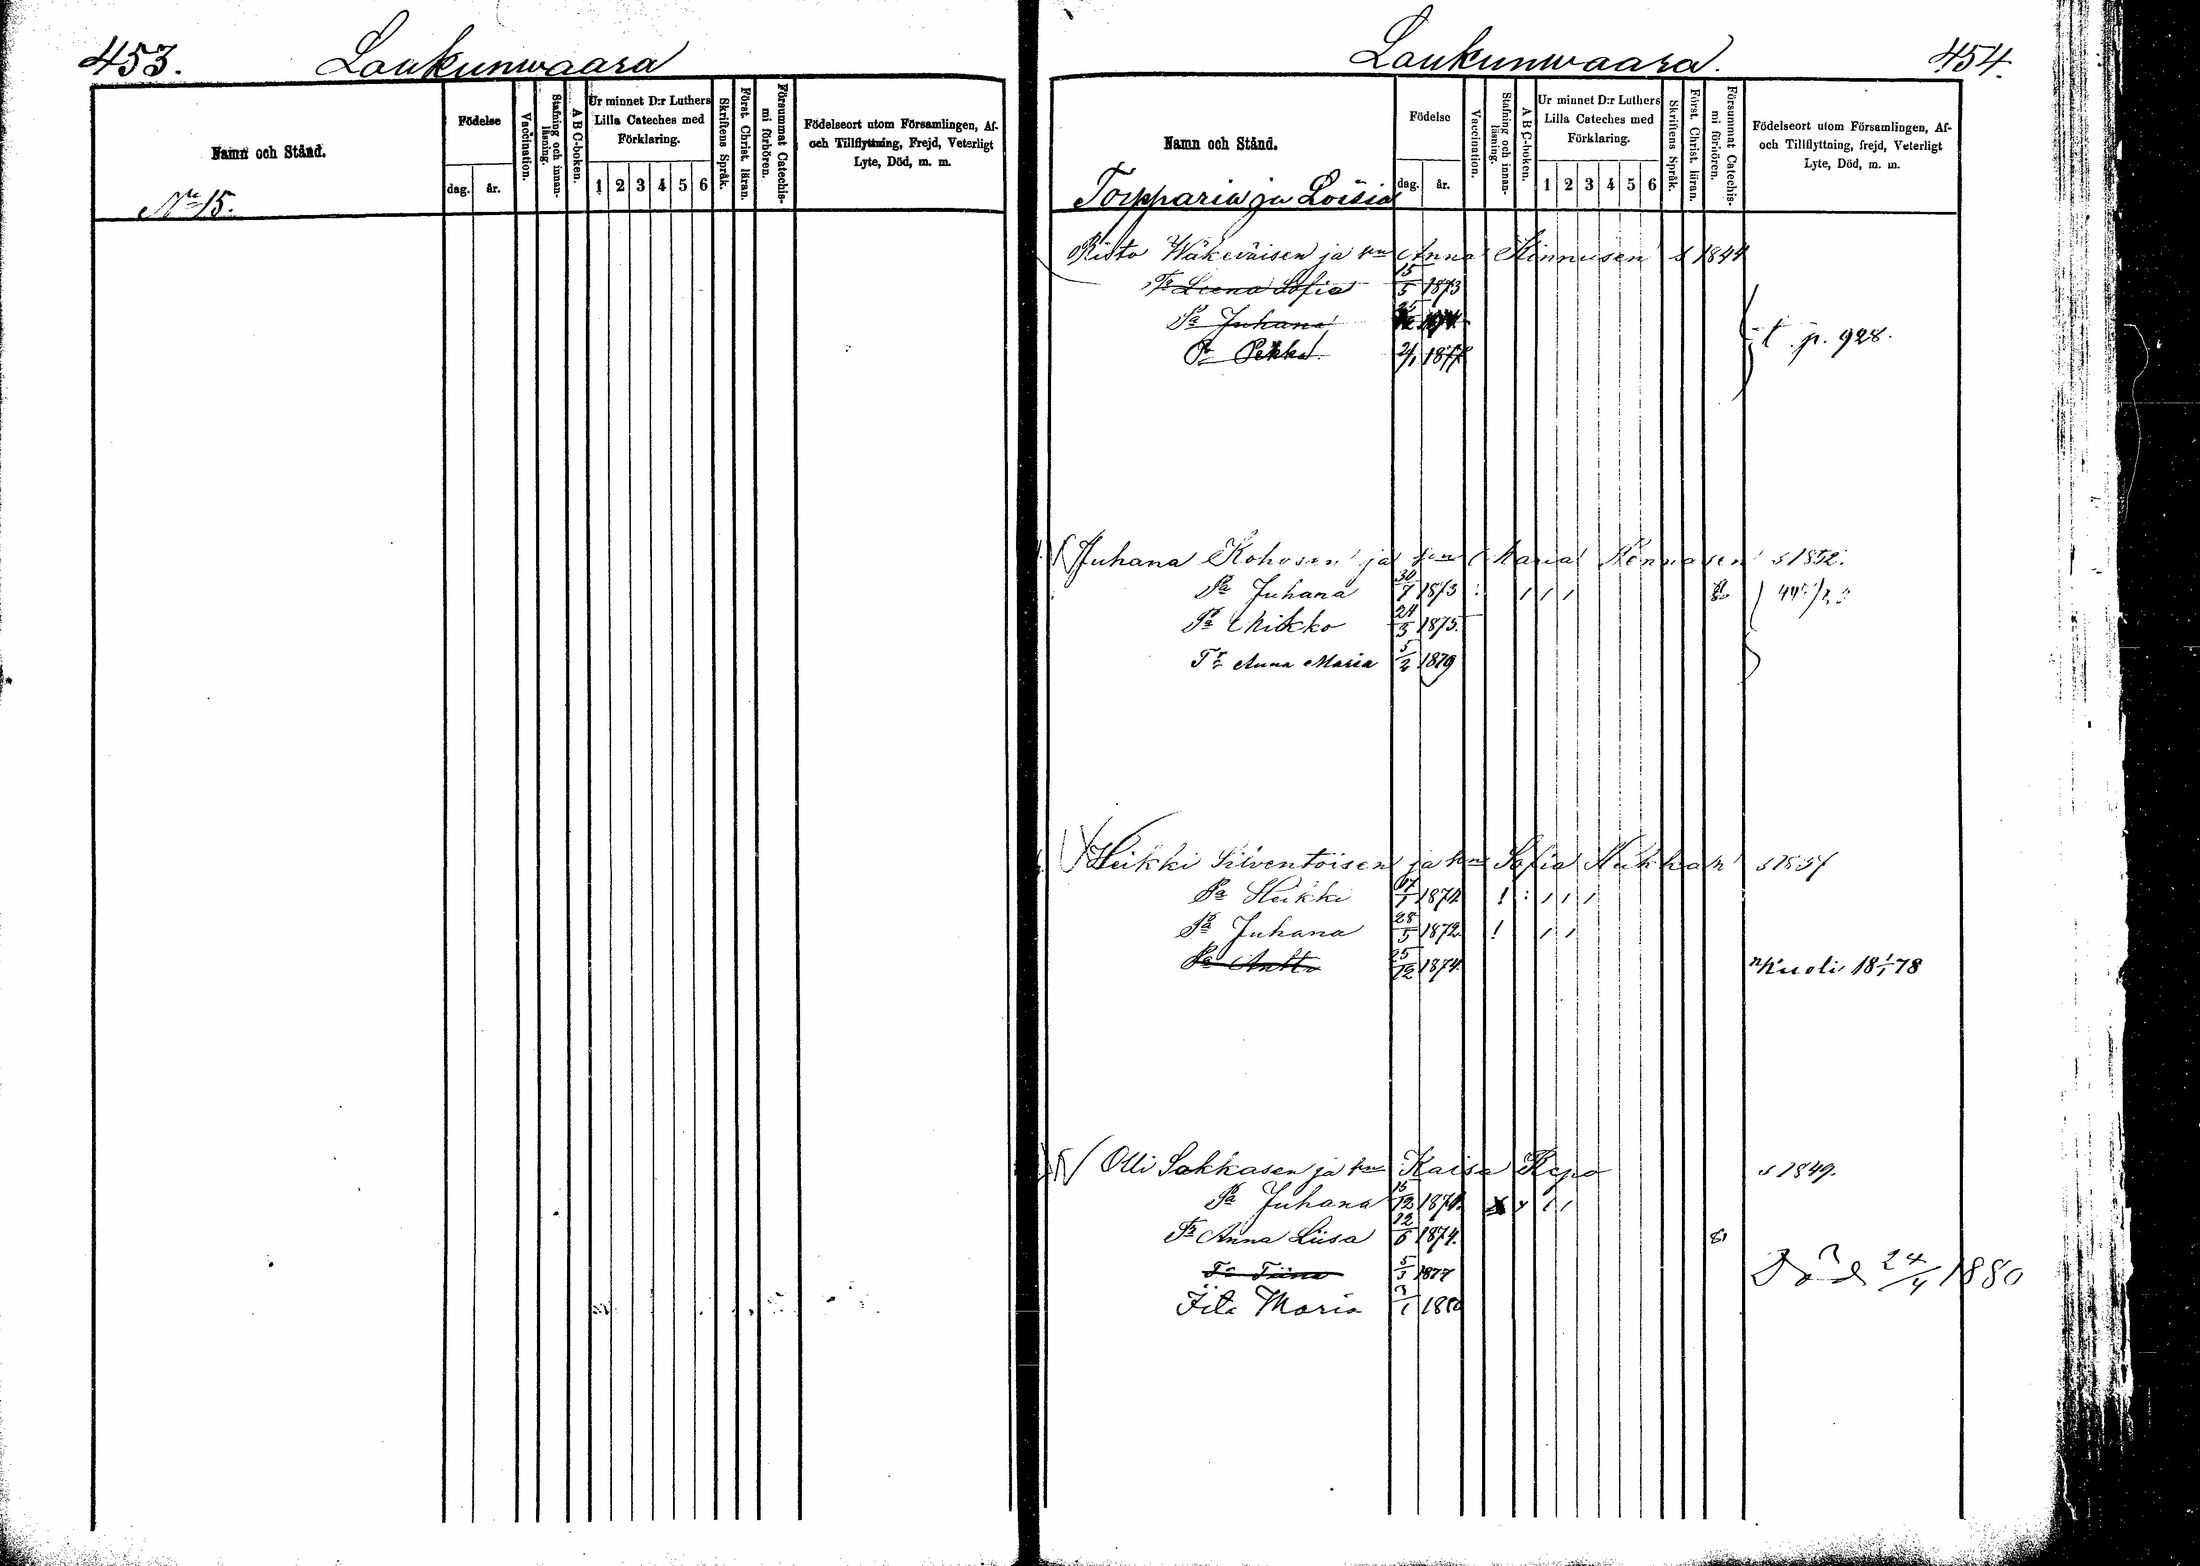 453.
Laukunwaara
Namn och Stånd.
Födelse
dag.
år.
Vaccination.
Stafning och innan-
läsning.
A B C-boken.
Ur minnet D:r Luthers
Lilla Cateches med
Förklaring.
1 2 3 4 5 6
Skriftens Språk.
Först. Christ. läran.
Försummat Catechis-
mi förhören.
Födelseort utom Församlingen, Af-
och Tillflyttning, Frejd, Veterligt
Lyte, Död, m. m.
No 15.
Laukunwaara.
454.
Namn och Stånd.
Födelse
dag.
år.
Vaccination.
Stafning och innan-
läsning.
A B C-boken.
Ur minnet D:r Luthers
Lilla Cateches med
Förklaring.
1 2 3 4 5 6
Skriftens Språk.
Först. Christ. läran.
Försummat Catechis-
mi förhören.
Födelseort utom Församlingen, Af-
och Tillflyttning, frejd, Veterligt
Lyte, Död, m. m.
Torpparia ja Loisia
Risto Wäkeväisen ja vm Anna Kinnusen s 1844
Tr Leena Sofia 15/5 1873
Pa Juhana
Pa Pekka 2/1 1877
t. p. 928.
Juhana Kohosen ja vm Maria s 1852.
Pa Juhana 30/7 1873
Pa Mikko 24/3 1875.
Tr Anna Maria 5/2 1879
Heikki Silventoisen ja vm Sofia Hukkan
Pa Heikki
Pa Juhana 28/5 1872
Pa Antto 25/12 1874. Kuoli 18 1/1 78
Olli Sakkasen ja vm Kaisa Repo s 1849.
Pa Juhana 15/12 1870.
Tr Anna Liisa 12/6 1874.
Tr Tiina 5/3 1877 Död 24/4 1880
Iita Maria 3/1 1880